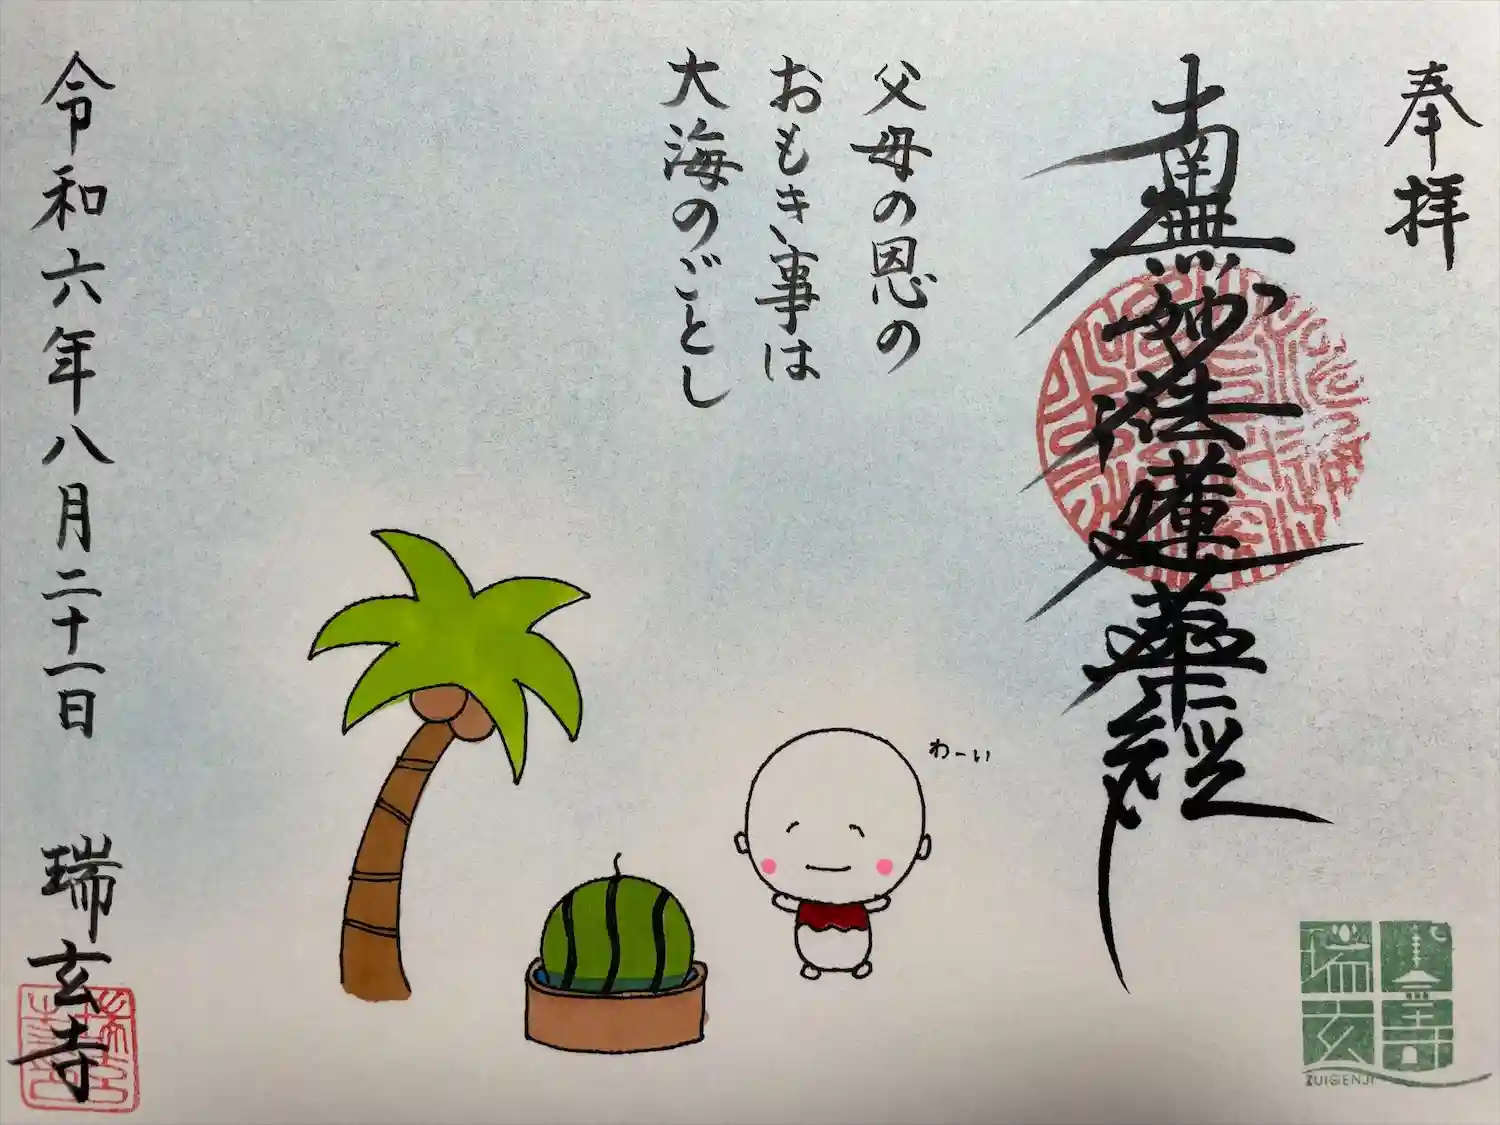 奉拝
南無妙法蓮華経
父母の恩の
おもき事は
大海のごとし
わーい
令和六年八月二十一日 瑞玄寺
瑞玄
ZUIGENJI